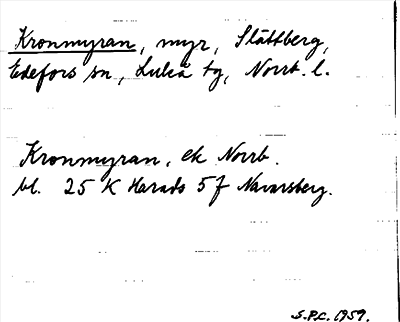 Kronmyran, myr, Slåttberg,
Edefors sn, Luleå tg, Norrb. l.
Kronmyran, ek Norrb.
bl. 25 K Harads 5 f Navarsberg.
S.P.C. 1959.